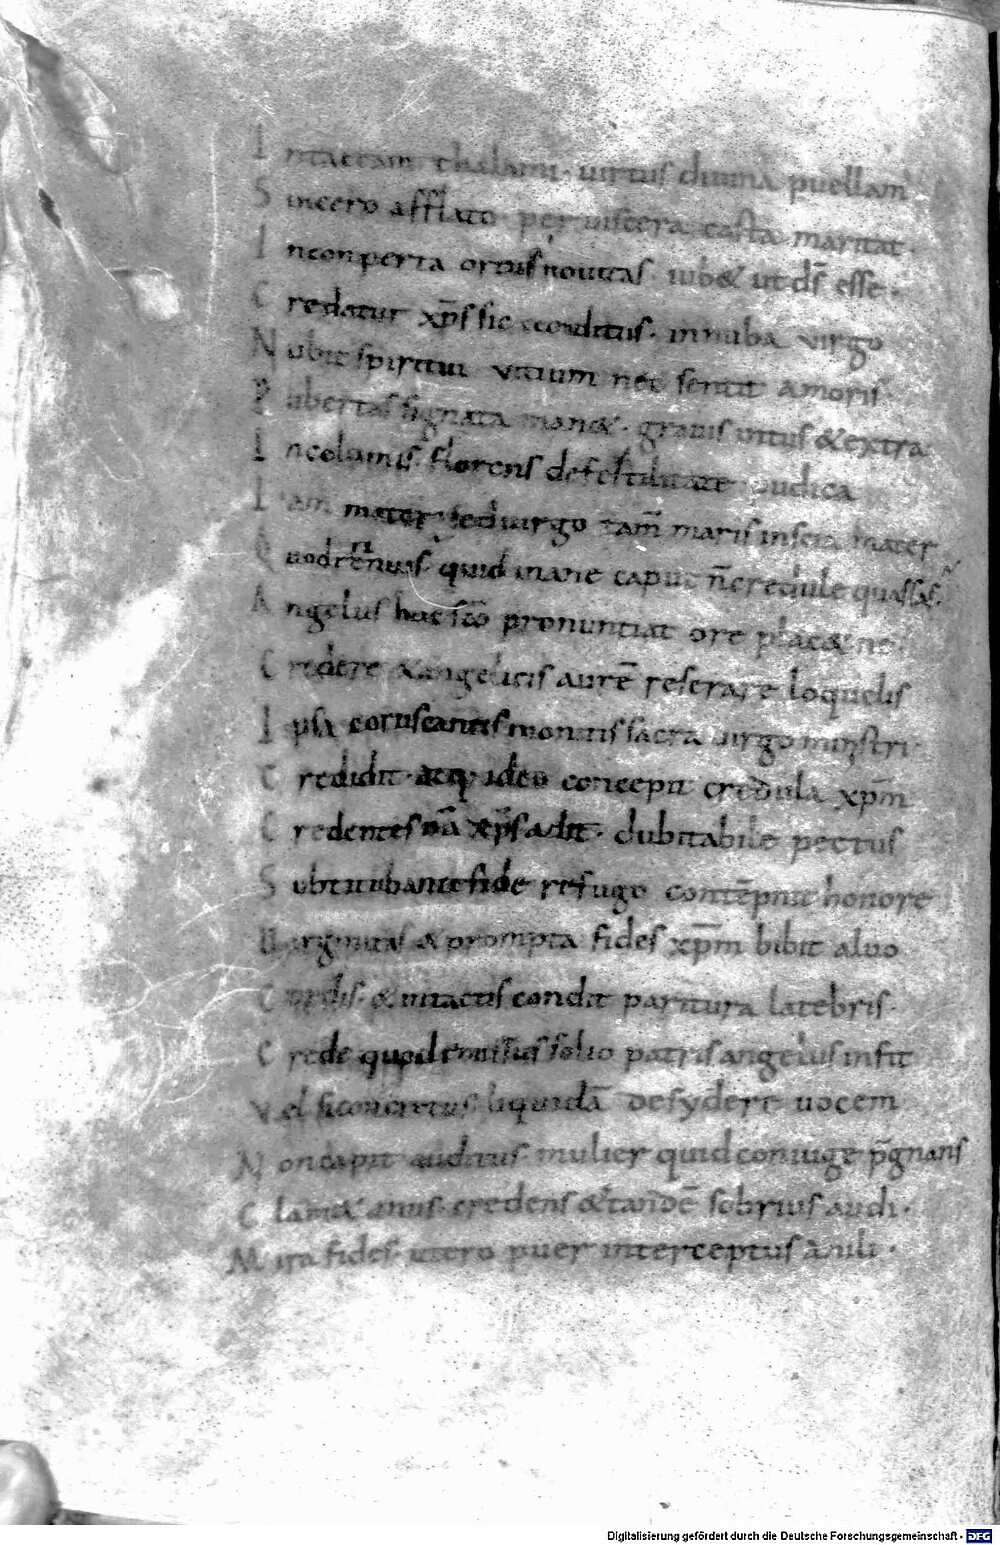 Intactam thalami· uirtus diuina puellam
Sincero afflato· per uiscera casta maritat·
Inconperta ortus nouitas· iub& ut ds̄ esse·
Credatur xp̄s sic conditus· innuba virgo
Nubit spiritui vitium nec sentit amoris
Pubertas signata man&· grauis intus & extra
Incolumis· florens de fertilitate pudica
Iam mater· sed uirgo tam̄ maris inscia mater
Quid renuis· quid inane caput n̄ credule quassas·
Angelus hoc sc̄o pronuntiat ore plac& ne
Credere & angelicis aurē reserare loquelis
Ipsa coruscantis monitis sacra uirgo ministri·
Credidit· atq; ideo concepit credula xp̄m
Credentes nā xp̄s adit· dubitabile pectus
Subtitubante fide refugo contēpnit honore
Uirginitas & prompta fides xp̄m bibit aluo
Cordis· & intactis condit paritura latebris·
Crede quod emissus solio patris angelus infit
Vel si concretus liquidā de sydere uocem
Non capit auditus· mulier quid coniuge p̄gnans
Clam& anus· credens & tandē sobrius audi·
Mira fides· utero puer interceptus anili·
Digitalisierung gefördert durch die Deutsche Forschungsgemeinschaft - DFG